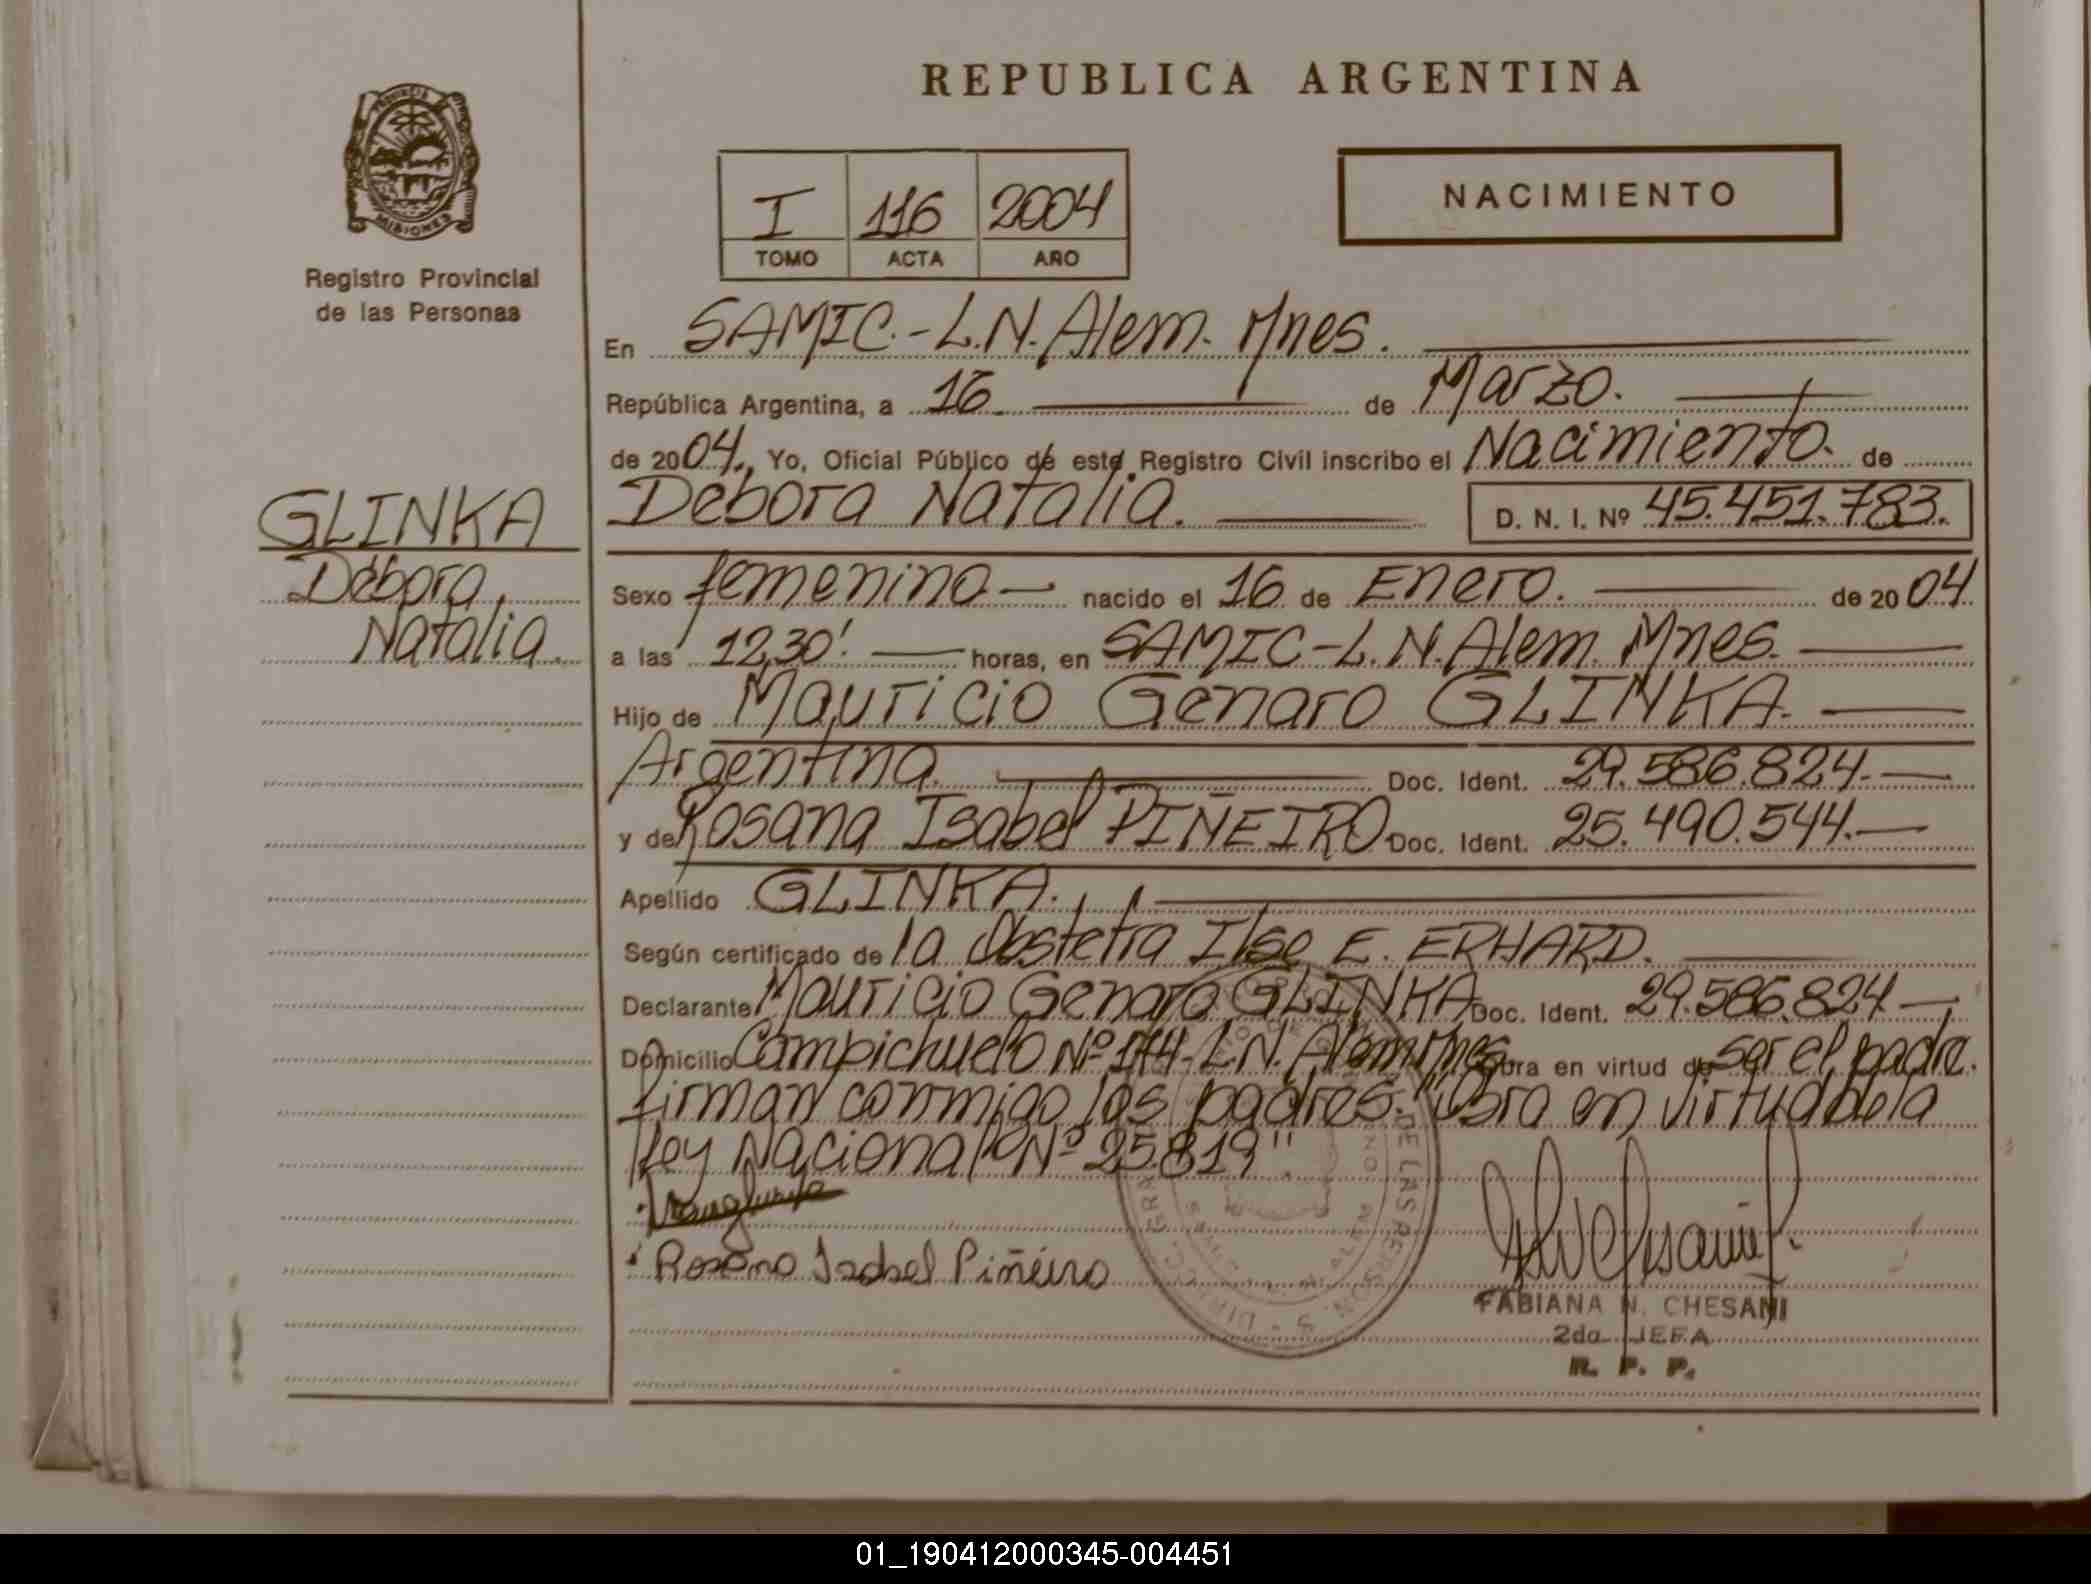 REPUBLICA ARGENTINA
PROVINCIA
MISIONES
Registro Provincial
de las Personas
I 116 2004
TOMO ACTA AÑO
NACIMIENTO
En SAMIC.-L.N.Alem. Mnes.
República Argentina, a 16 de Marzo.
de 2004., Yo, Oficial Público de este Registro Civil inscribo el Nacimiento. de
Débora Natalia. D. N. I. Nº 45.451.783.
GLINKA
Débora
Natalia.
Sexo femenino nacido el 16 de Enero. de 2004
a las 12,30'. horas, en SAMIC-L.N.Alem. Mnes.
Hijo de Mauricio Genaro GLINKA.
Argentina. Doc. Ident. 29.586.824.
y de Rosana Isabel PIÑEIRO Doc. Ident. 25.490.544.
Apellido GLINKA.
Según certificado de la Obstetra Ilse E. ERHARD.
Declarante Mauricio Genaro GLINKA Doc. Ident. 29.586.824
Domicilio Campichuelo Nº 174-L.N.Alem Mnes. Obra en virtud de ser el padre.
firman conmigo los padres. "Obra en virtud de la
Ley Nacional Nº 25.819"
Rosana Isabel Piñeiro
DE LAS PERSONAS
FABIANA N. CHESANI
2da. JEFA
R. P. P.
01_190412000345-004451